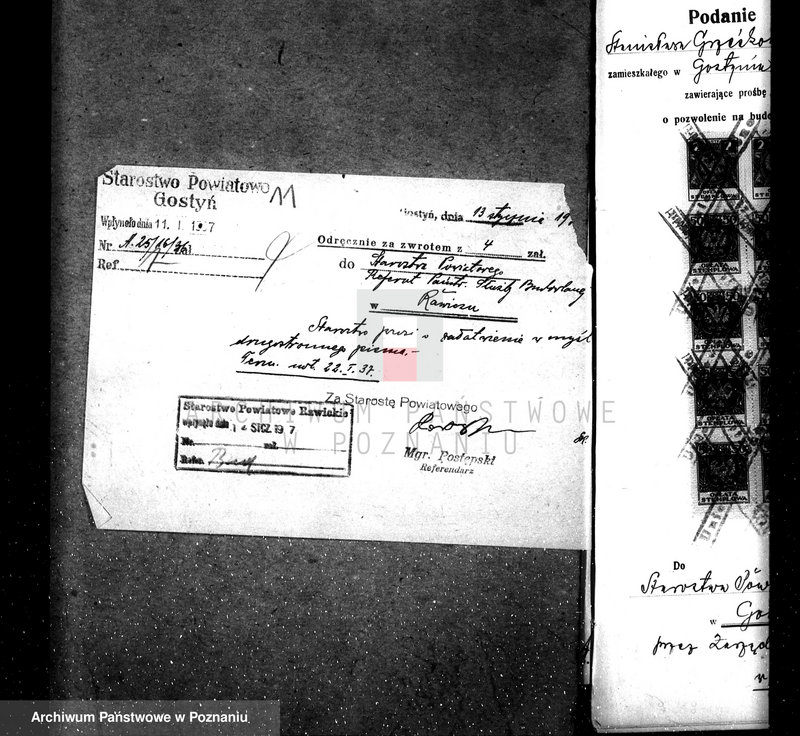 Starostwo Powiatowe
Gostyń
11
Wpłynęło dnia 11. I. 1937
Nr A. 25/46/36 zał.
Ref.
Gostyń, dnia 13 stycznia 19
Odręcznie za zwrotem z 4 zał.
do Starostwa Powiatowego
Referat Państ. Służby Budowlanej
w Rawiczu
Starostwo prosi o załatwienie w myśl
drugostronnego pisma.-
Term. not. 22. I. 37.
Za Starostę Powiatowego
Mgr. Postępski
Referendarz
Starostwo Powiatowe Rawickie
wpłynęło dnia 14 STCZ 1937
Nr. zał.
Refer. Bud
ARCHIWUM PAŃSTWOWE
W POZNANIU
Podanie
Stanisława
zamieszkałego w Gostyniu
zawierające prośbę
o pozwolenie na budo
OPŁATA
STEMPLOWA
Do
Starostwa Pow
w Go
przez Zarząd
w
Archiwum Państwowe w Poznaniu